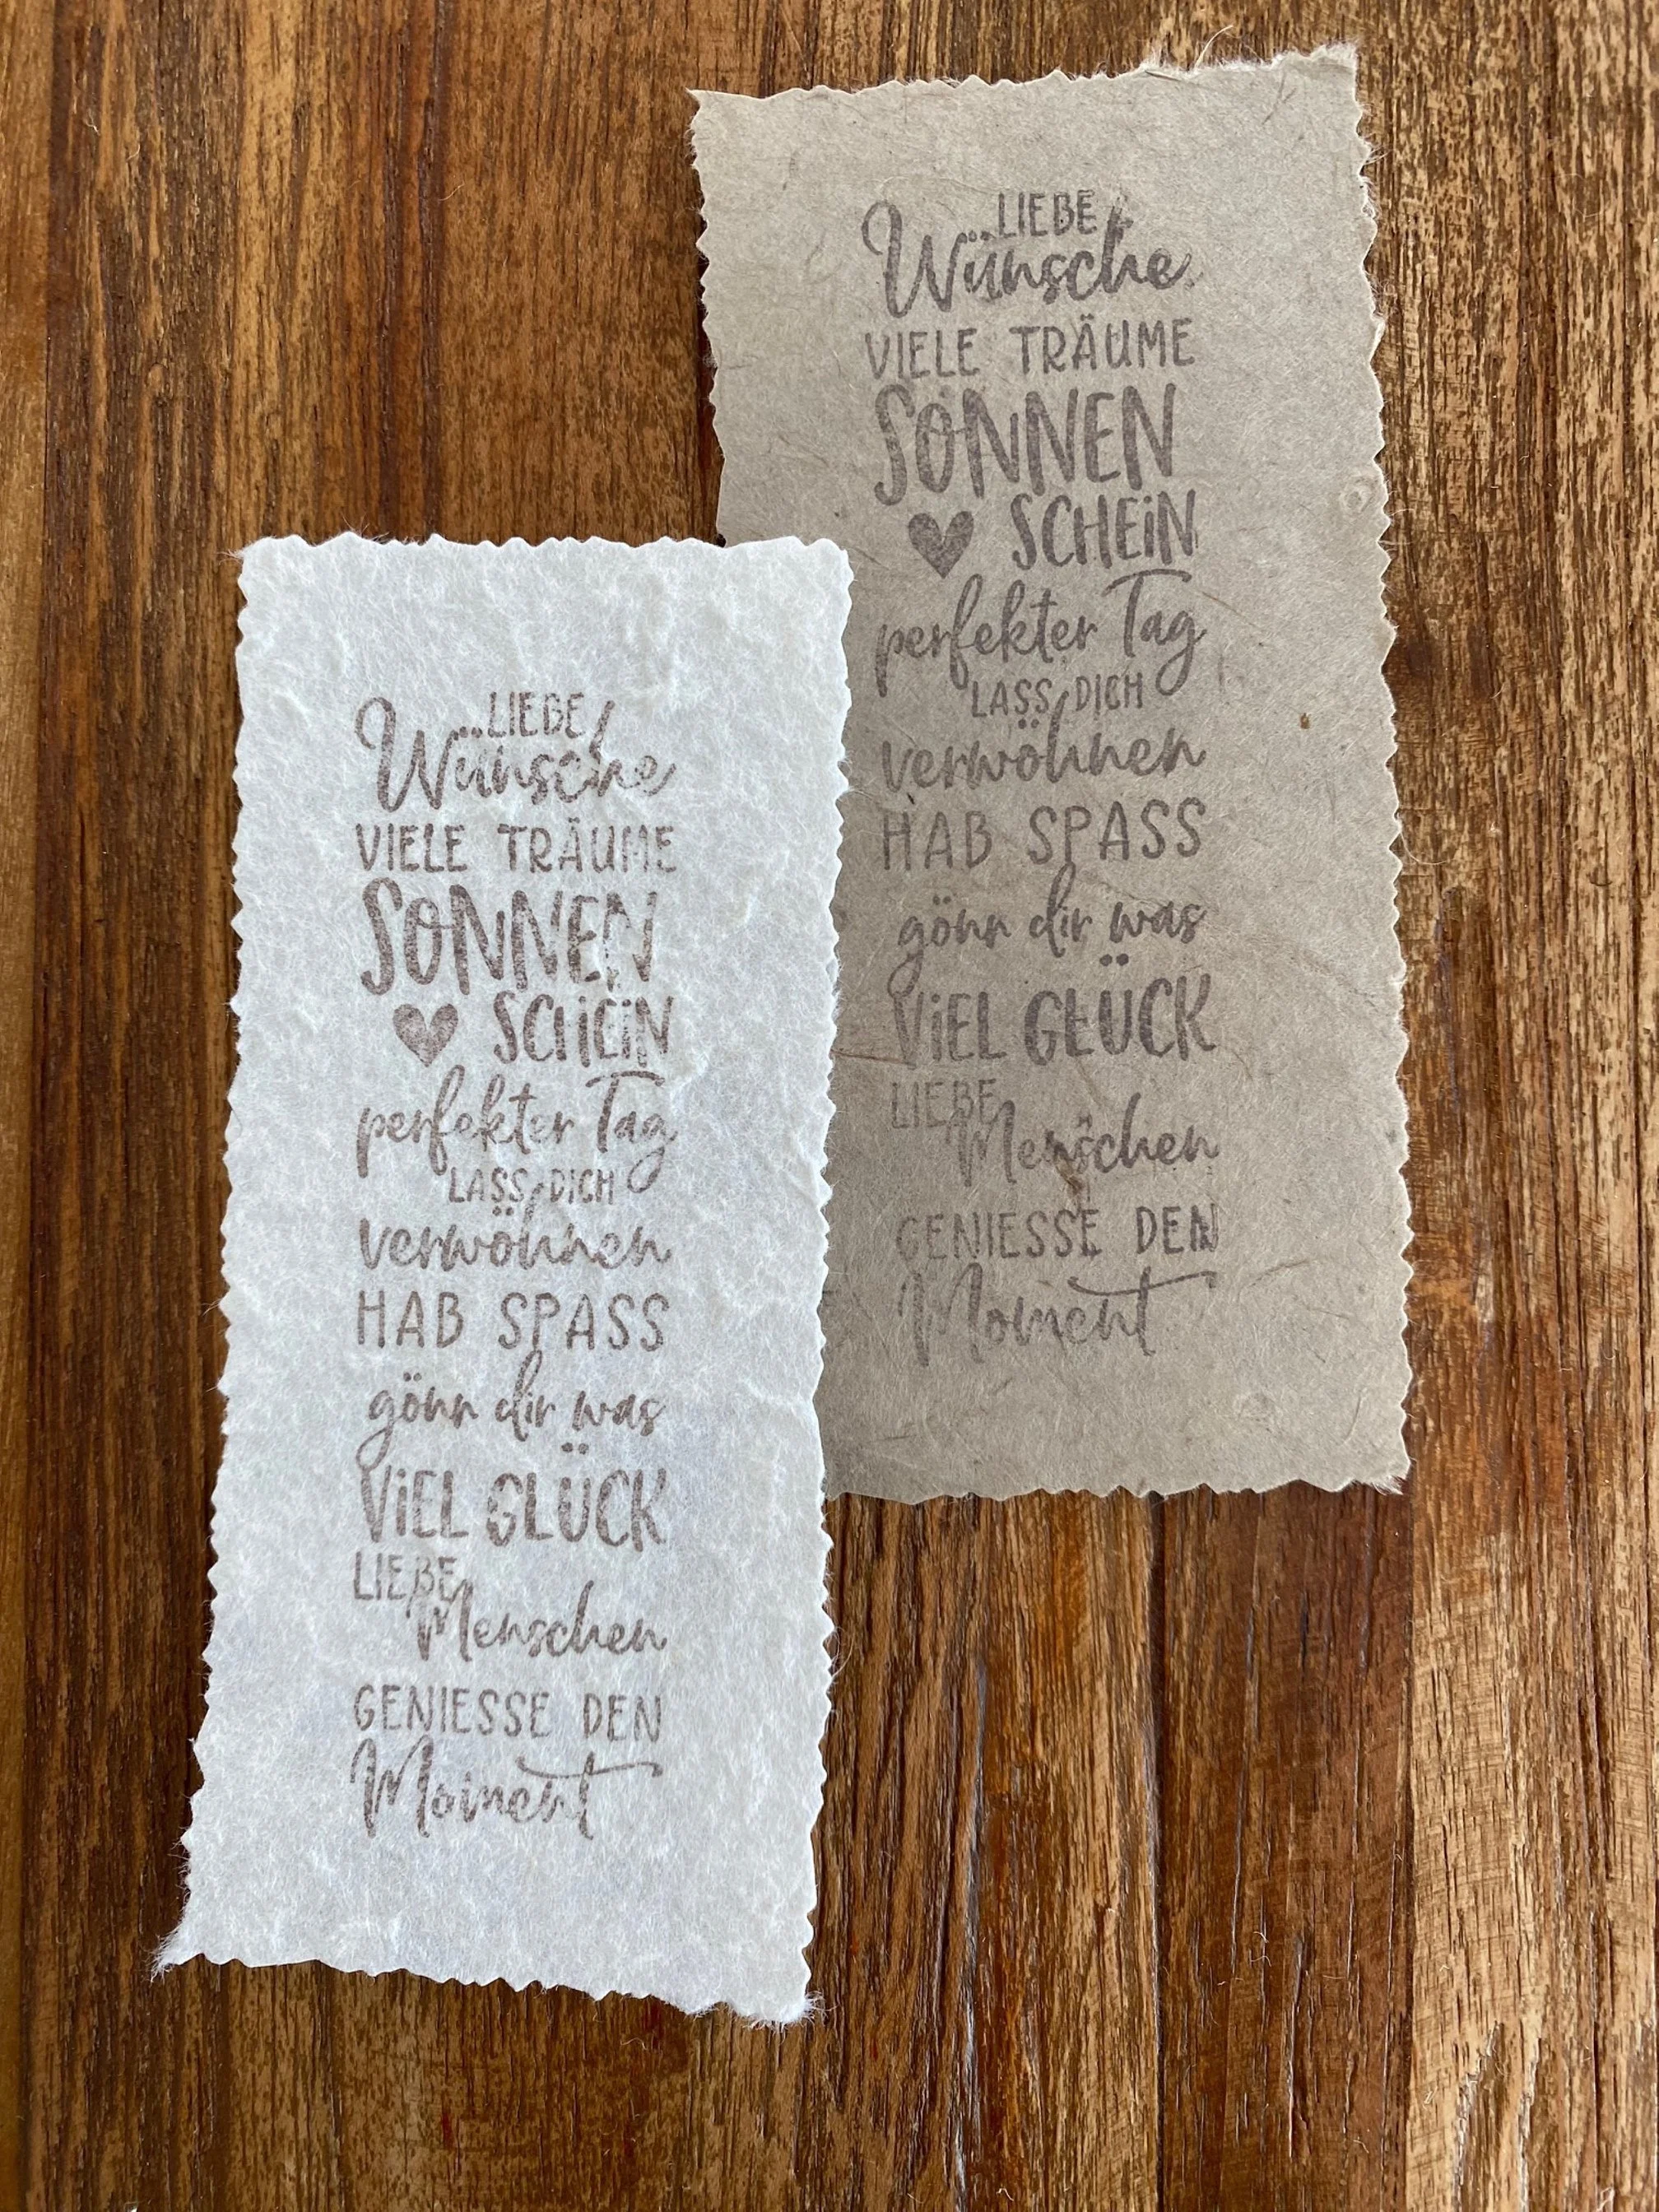 LIEBE
Wünsche
VIELE TRÄUME
SONNEN
SCHEiN
perfekter Tag
LASS DICH
verwöhnen
HAB SPASS
gönn dir was
ViEL GLÜCK
LIEBE
Menschen
GENIESSE DEN
Moment
LIEBE
Wünsche
VIELE TRÄUME
SONNEN
SCHEiN
perfekter Tag
LASS DICH
verwöhnen
HAB SPASS
gönn dir was
ViEL GLÜCK
LIEBE
Menschen
GENIESSE DEN
Moment